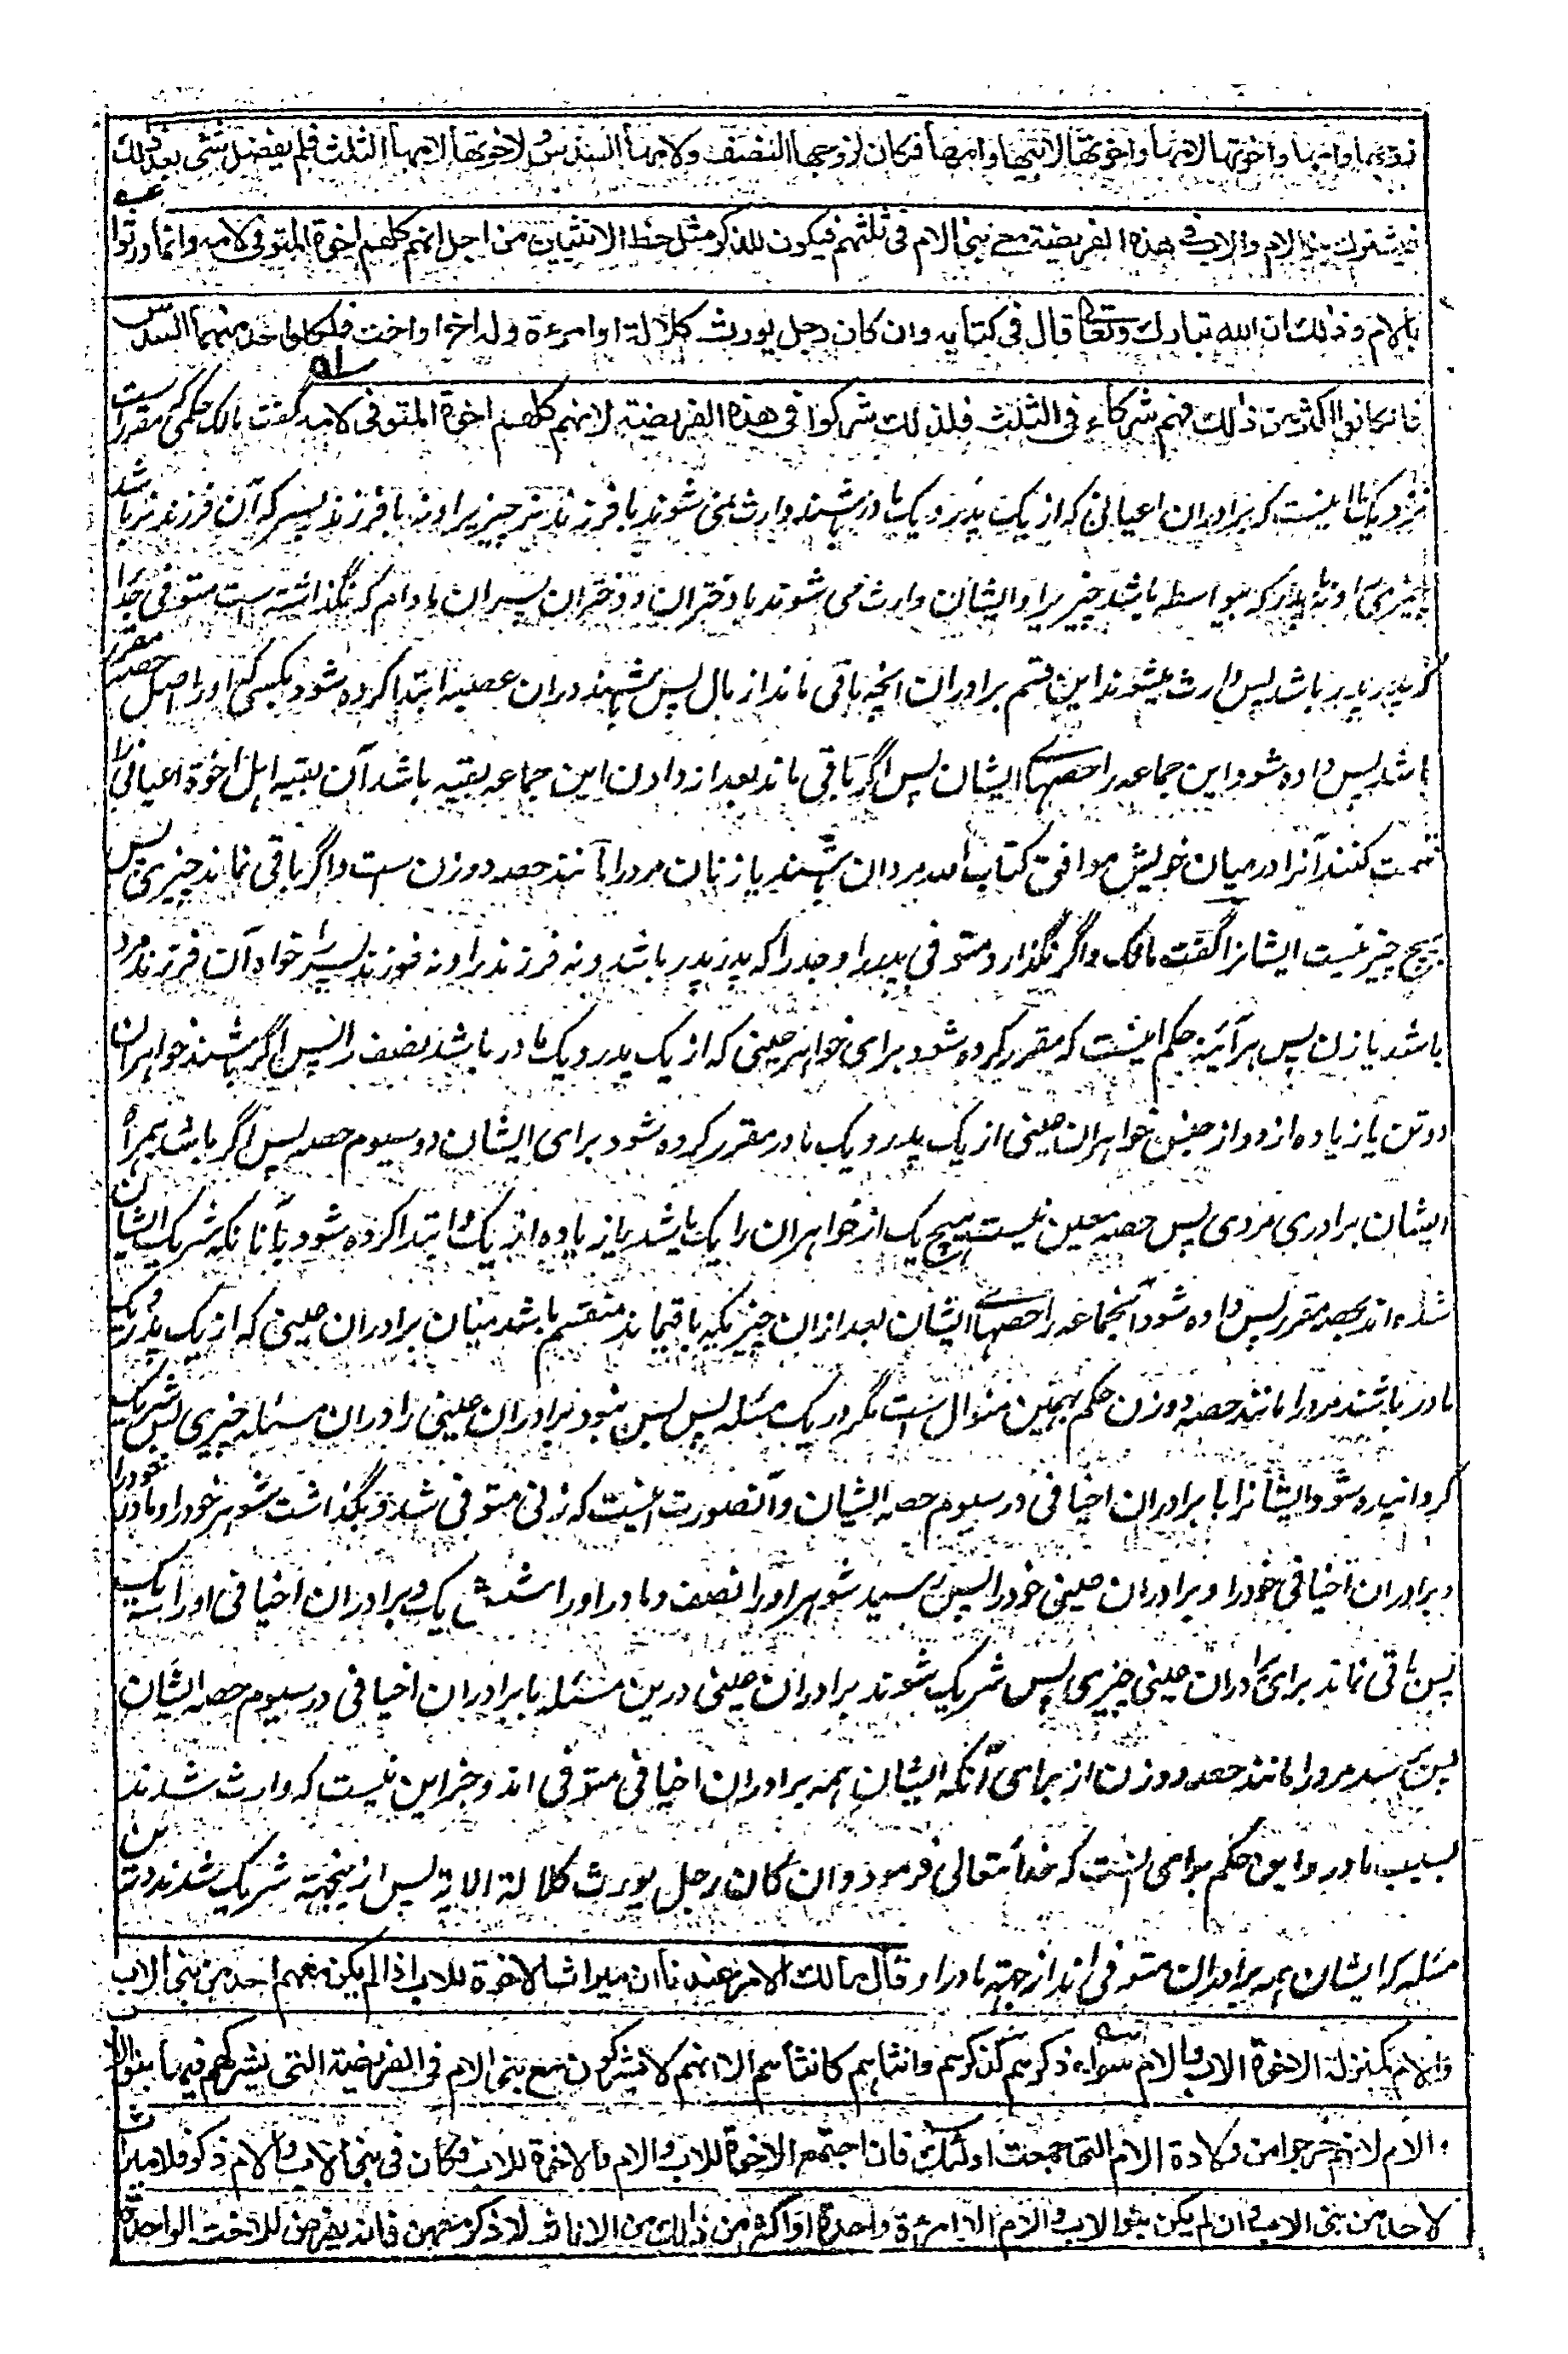 زوجها وامها واخوتها لامها واخوتها لابيها وامها فكان لزوجها النصف ولامها السدس ولاخوتها لامها الثلث فلم يفضل شئ بعد ذلك
فيشترك بنو الام والاب فى هذه الفريضة مع بنى الام فى ثلثهم فيكون للذكر مثل حظ الانثيين من اجل انهم كلهم اخوة المتوفى لامه وانما ورثوا
بالام وذلك ان الله تبارك وتعالى قال فى كتابه وان كان رجل يورث كلالة او امرءة وله اخ او اخت فلكل واحد منهما السدس
فان كانوا اكثر من ذلك فهم شركاء فى الثلث فلذلك شركوا فى هذه الفريضة لانهم كلهم اخوة المتوفى لامه گفت مالک حکمی که مقرر است
نزدیک ما اینست که برادران اعیانی که از یک پدر و یک مادر باشند وارث نمی شوند با فرزند نر چیزیرا و نه با فرزند پسر که آن فرزند نر باشد
چیزی را و نه با پدر که بیواسطه باشد چیزیرا و ایشان وارث می شوند با دختران و دختران پسران مادام که نگذاشته است متوفی جد را
که پدر پدر باشد پس وارث میشوند این قسم برادران انچه باقی ماند از مال پس باشند دران عصبه ابتدا کرده شود بکسی که او را اصل حصه مقرر
باشد پس داده شود این جماعه را حصهای ایشان پس اگر باقی ماند بعد از دادن این جماعه بقیه باشد آن بقیه اهل اخوة اعیانی را
قسمت کنند آنرا درمیان خویش موافق کتاب الله مردان باشند یا زنان مرد را مانند حصه دو زن ست و اگر باقی نماند چیزی پس
هیچ چیز نیست ایشانرا گفت مالک و اگر نگذارد متوفی پدر را و جد را که پدر پدر باشد و نه فرزند را و نه فرزند پسر را خواه آن فرزند مرد
باشد یا زن پس هر آئینه حکم اینست که مقرر کرده شود برای خواهر عینی که از یک پدر و یک مادر باشد نصف را پس اگر باشند خواهران
دو تن یا زیاده از دو از جنس خواهران عینی از یک پدر و یک مادر مقرر کرده شود برای ایشان دو سیوم حصه پس اگر باشد همراه
ایشان برادری مردی پس حصه معین نیست هیچ یک از خواهران را یک باشد یا زیاده از یک و ابتدا کرده شود بآنانکه شریک ایشان
شده اند بحصه مقرر پس داده شود آنجماعه را حصهای ایشان بعد ازان چیزیکه باقیماند منقسم باشد میان برادران عینی که از یک پدر و یک
مادر باشند مرد را مانند حصه دو زن حکم بهمین منوال ست مگر در یک مسئله پس بس نبود برادران عینی را دران مسئله چیزی پس شریک
گردانیده شود ایشانرا با برادران اخیافی در سیوم حصه ایشان و آنصورت اینست که زنی متوفی شد و بگذاشت شوهر خود را و مادر خود را
و برادران اخیافی خود را و برادران عینی خود را پس رسید شوهر او را نصف و مادر او را شش یک و برادران اخیافی او را سه یک
پس باقی نماند برای برادران عینی چیزی پس شریک شوند برادران عینی درین مسئله با برادران اخیافی در سیوم حصه ایشان
پس رسد مرد را مانند حصه دو زن از برای آنکه ایشان همه برادران اخیافی متوفی اند و جز این نیست که وارث شدند
بسبب مادر و این حکم برای آنست که خدای تعالی فرمود وان كان رجل يورث كلالة الاية پس ازینجهته شریک شدند درین
مسئله که ایشان همه برادران متوفی اند از جهة مادر او قال مالك الامر عندنا ان ميراث الاخوة للاب اذا لم يكن معهم احد من بنى الاب
والام كمنزلة الاخوة الاب والام سواء ذكرهم كذكرهم وانثاهم كانثاهم الا انهم لا يشركون مع بنى الام فى الفريضة التى يشركهم فيها بنو الاب
والام لانهم خرجوا من ولادة الام التى جمعت اولئك فان اجتمع الاخوة للاب والام والاخوة للاب فكان فى بنى الاب والام ذكر فلا ميراث
لاحد من بنى الاب وان لم يكن بنو الاب والام الا امرءة واحدة او اكثر من ذلك من الاناث لا ذكر معهن فانه يفرض للاخت الواحدة